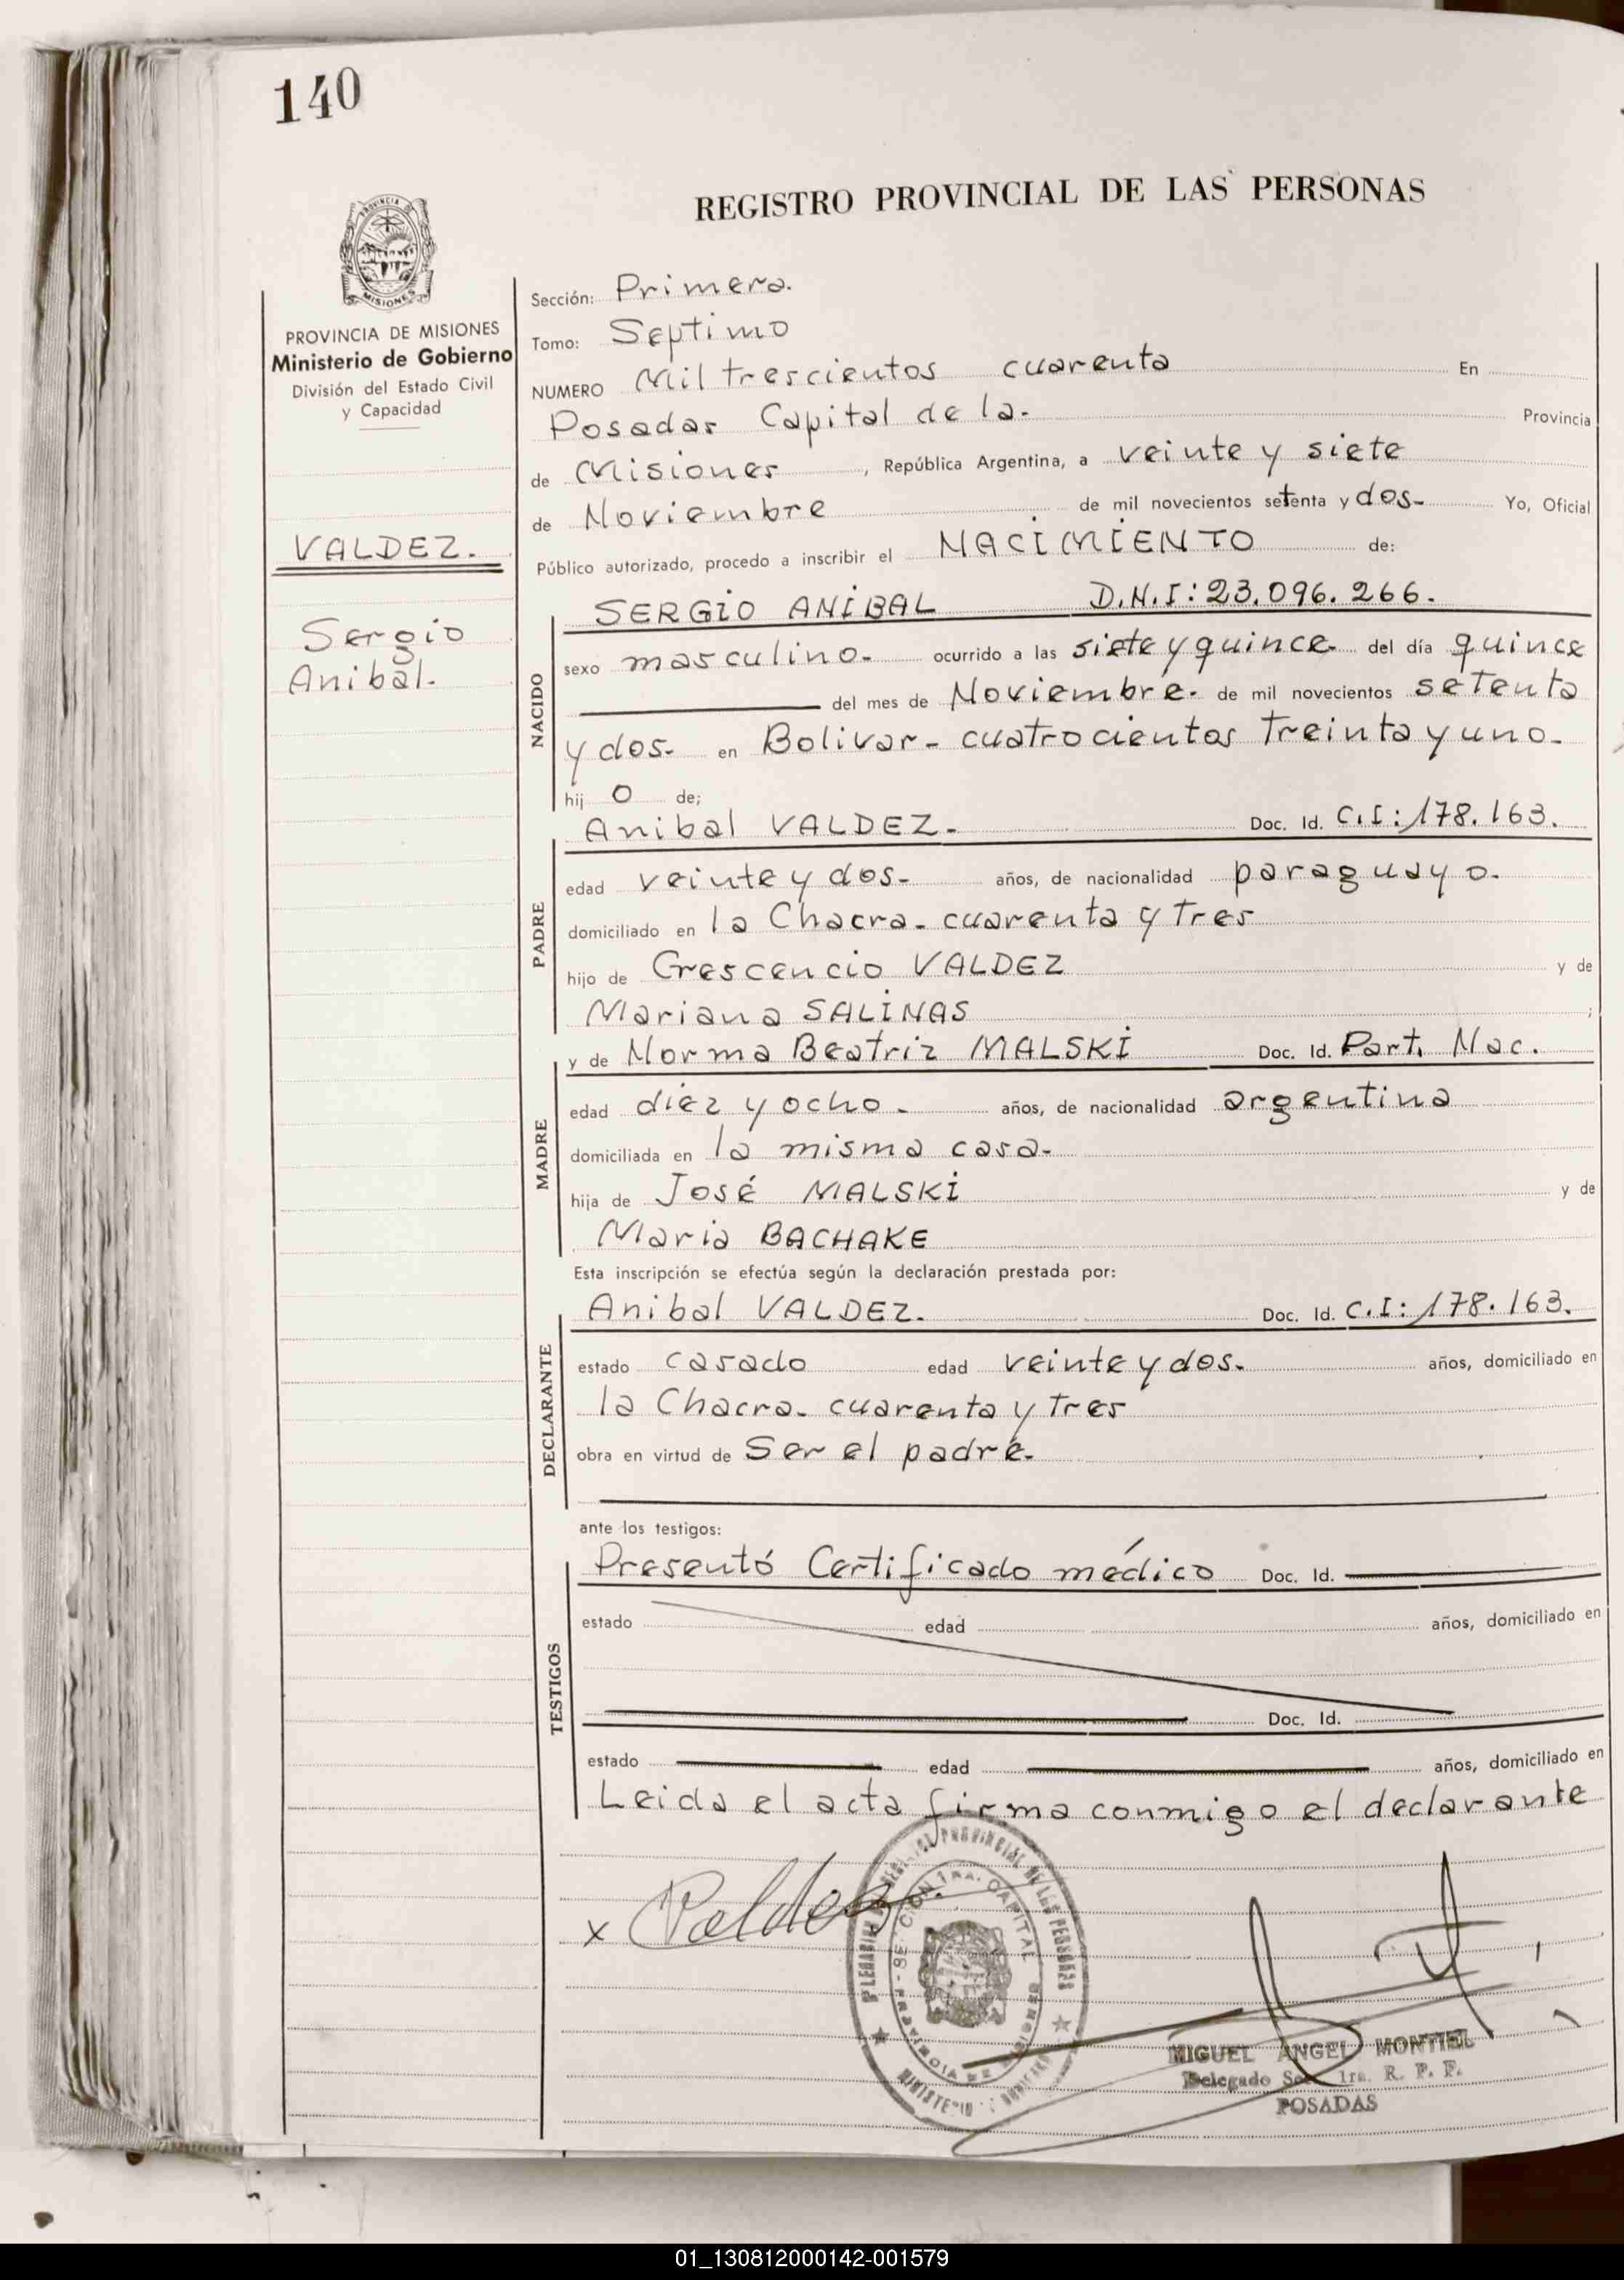 140
REGISTRO PROVINCIAL DE LAS PERSONAS
PROVINCIA DE
MISIONES
PROVINCIA DE MISIONES
Ministerio de Gobierno
División del Estado Civil
y Capacidad
VALDEZ.
Sergio
Anibal.
Sección: Primera.
Tomo: Septimo
NUMERO Mil trescientos cuarenta En
Posadas Capital de la. Provincia
de Misiones, República Argentina, a veinte y siete
de Noviembre de mil novecientos setenta y dos. Yo, Oficial
Público autorizado, procedo a inscribir el NACIMIENTO de:
NACIDO
SERGIO ANIBAL D.N.I: 23.096.266.
sexo masculino. ocurrido a las siete y quince. del día quince
del mes de Noviembre. de mil novecientos setenta
y dos. en Bolivar. cuatrocientos treinta y uno.
hij o de;
PADRE
Anibal VALDEZ. Doc. Id. C.I: 178.163.
edad veinte y dos. años, de nacionalidad paraguayo.
domiciliado en la Chacra. cuarenta y tres
hijo de Crescencio VALDEZ y de
Mariana SALINAS ;
MADRE
y de Norma Beatriz MALSKI Doc. Id. Part. Nac.
edad diez y ocho. años, de nacionalidad argentina
domiciliada en la misma casa.
hija de José MALSKI y de
Maria BACHAKE
Esta inscripción se efectúa según la declaración prestada por:
DECLARANTE
Anibal VALDEZ. Doc. Id. C.I: 178.163.
estado casado edad veinte y dos. años, domiciliado en
la Chacra. cuarenta y tres
obra en virtud de Ser el padre.
ante los testigos:
TESTIGOS
Presentó Certificado médico Doc. Id.
estado edad años, domiciliado en
Doc. Id.
estado edad años, domiciliado en
Leida el acta firma conmigo el declarante
x Valdez
PROVINCIAL DE LAS PERSONAS
CAPITAL
MIGUEL ANGEL MONTIEL
Delegado 1ra. R. P. P.
POSADAS
01_130812000142-001579